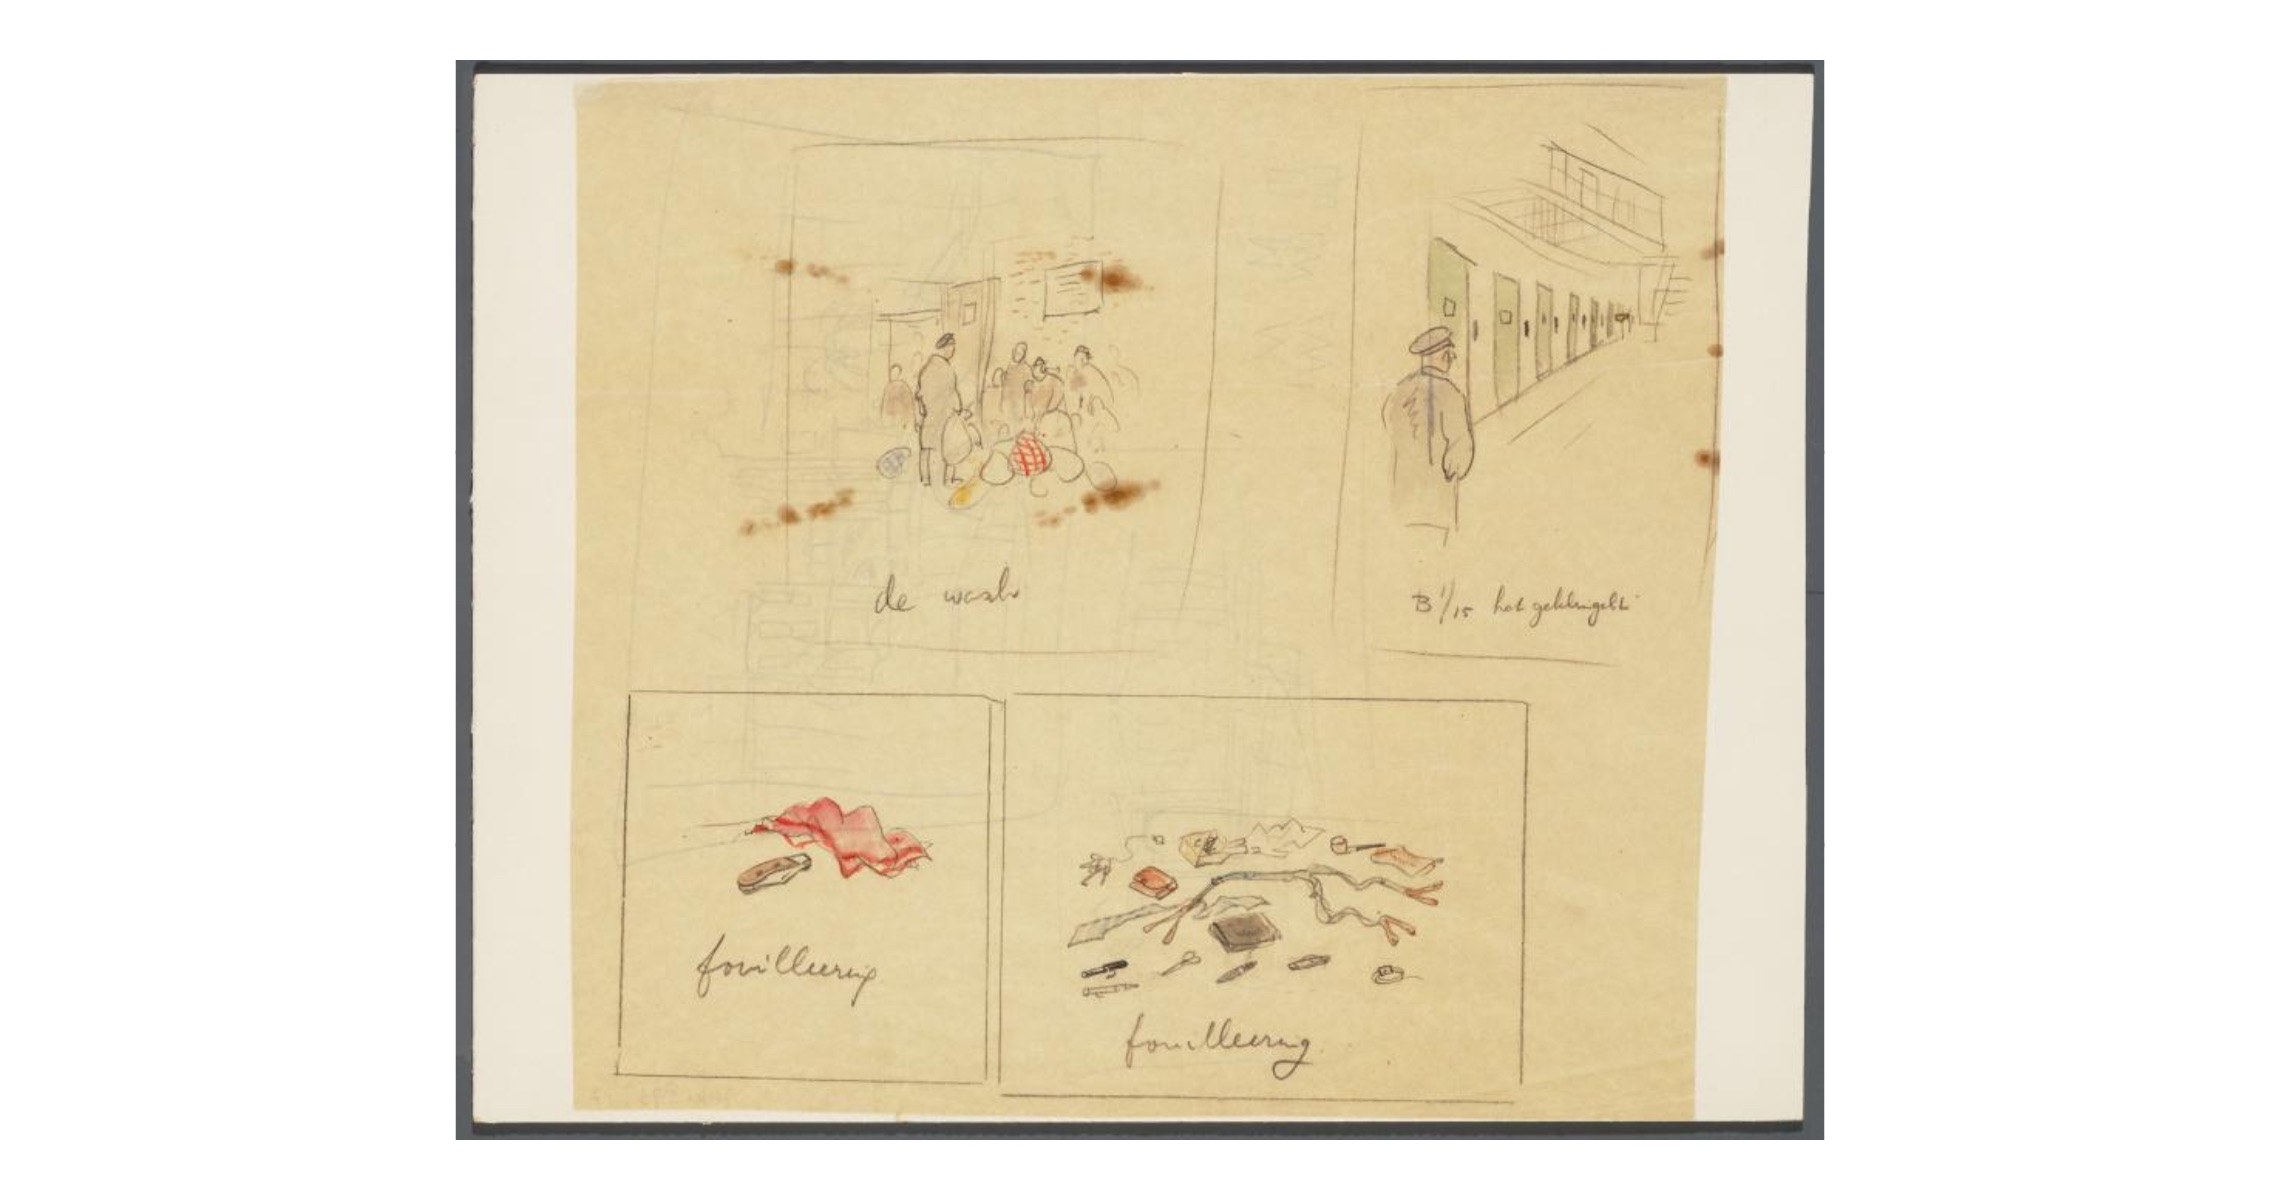 de wasch
B 1/15 het gekkengebr
fouilleering
fouilleering